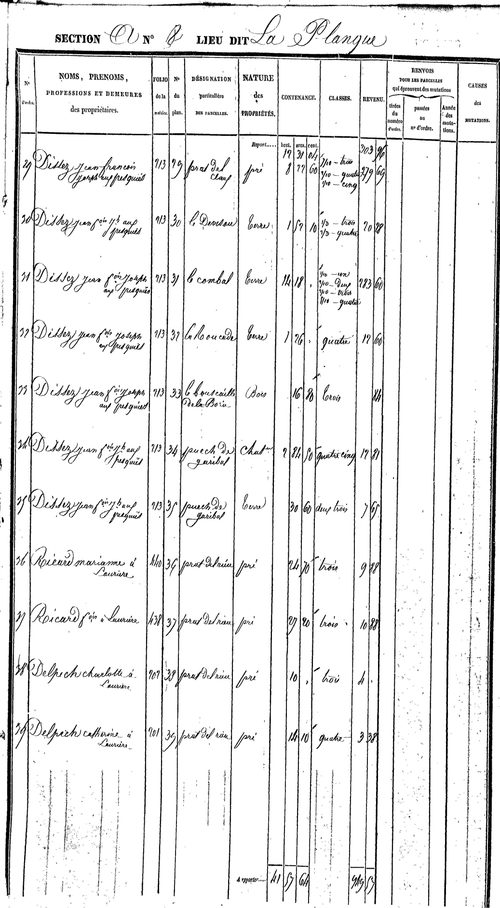 SECTION A N° 8 LIEU DIT La Planque
N° d'ordre.
NOMS, PRENOMS, PROFESSIONS ET DEMEURES des propriétaires.
FOLIO de la matrice.
N° du plan.
DÉSIGNATION particulière DES PARCELLES.
NATURE des PROPRIÉTÉS.
CONTENANCE.
CLASSES.
REVENU.
RENVOIS POUR LES PARCELLES qui éprouvent des mutations
tirées du numéro d'ordre.
passées au n° d'ordre.
Année des mutations.
CAUSES des MUTATIONS.
hect. ares. cent.
Report 303 96
29 Distez jean francois joseph aux fresquiès 213 29 prat del clauf pré 8 77 60
30 Distez jean fois Jph aux fresquiès 213 30 Terre 1 57 10 trois quatre 20 28
31 Distez jean fois joseph aux fresquiès 213 31 le combal Terre 14 18 un deux trois quatre 283 60
32 Distez jean fois joseph aux fresquiès 213 32 Terre 1 76 quatre 17 60
33 Distez jean fois joseph aux fresquiès 213 33 Bois 16 80 Trois 84
34 Distez jean fois Jph aux fresquiès 213 34 puech de garibal Chat 2 84 50 quatre cinq 17 81
35 Distez jean fois Jph aux fresquiès 213 35 puech de garibal Terre 30 60 deux trois 7 65
36 Ricard marianne à Laurière 440 36 prat del rieu pré 24 70 trois 9 88
37 Ricard fois à Laurière 438 37 prat del rieu pré 27 20 trois 10 88
38 Delpech charlotte à Laurière 202 38 prat del rieu pré 10 trois 4
39 Delpech catherine à Laurière 201 39 prat del rieu pré 14 10 quatre 3 38
à reporter 41 57 64 949 57